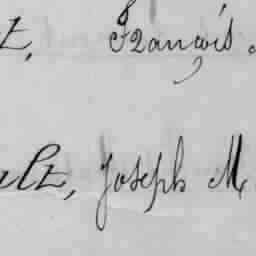 t, François
ult, Joseph M